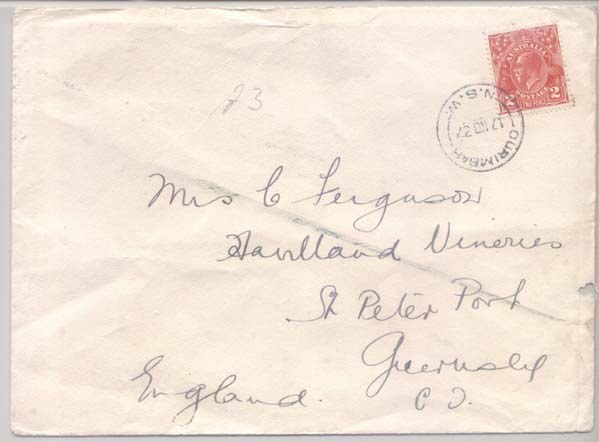 AUSTRALIA
POSTAGE
2
TWO PENCE
OURIMBAH
N.S.W.
23
Mrs C Ferguson
Havilland Vineries
St Peter Port
Guernsey
England. C I.